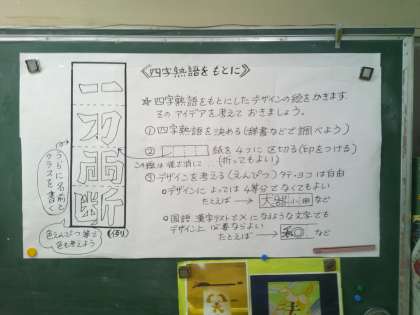 《四字熟語をもとに》
☆四字熟語をもとにしたデザインの絵をかきます
そのアイデアを考えておきましょう。
①四字熟語を決める(辞書などで調べよう)
② 紙を4つに区切る(印をつける)
(折ってもよい)
この線は後で消に
③デザインを考える(えんぴつ)タテ・ヨコは自由
○デザインによっては4等分でなくてもよい
たとえば→ など
○国語 漢字テストで×になるような文字でも
デザイン上 必要ならよい
たとえば→ など
一刀両断
(例)
うらに名前と
クラスを書く
色えんぴつ等で
色も考えよう